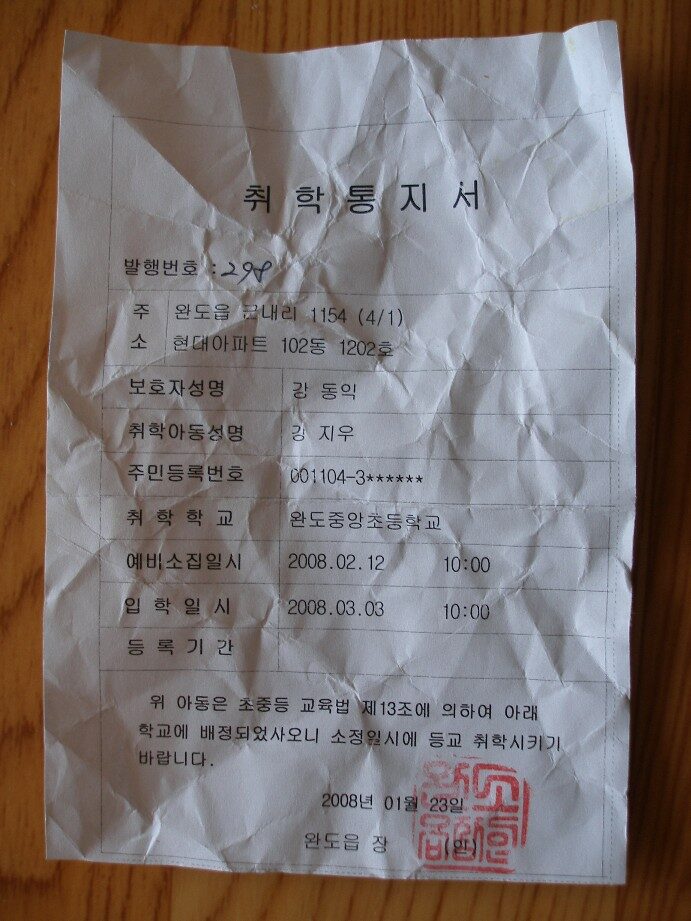 취 학 통 지 서
발행번호 : 298
주 소 완도읍 군내리 1154 (4/1)
현대아파트 102동 1202호
보호자성명 강 동익
취학아동성명 강 지우
주민등록번호 001104-3******
취 학 학 교 완도중앙초등학교
예비소집일시 2008.02.12 10:00
입 학 일 시 2008.03.03 10:00
등 록 기 간
위 아동은 초중등 교육법 제13조에 의하여 아래
학교에 배정되었사오니 소정일시에 등교 취학시키기
바랍니다.
2008년 01월 23일
완도읍 장 (인)